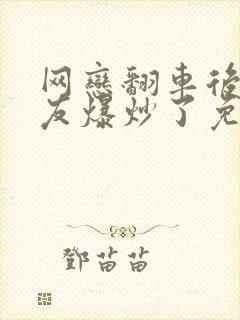 网戀翻車後
友爆炒了免
鄧苗苗